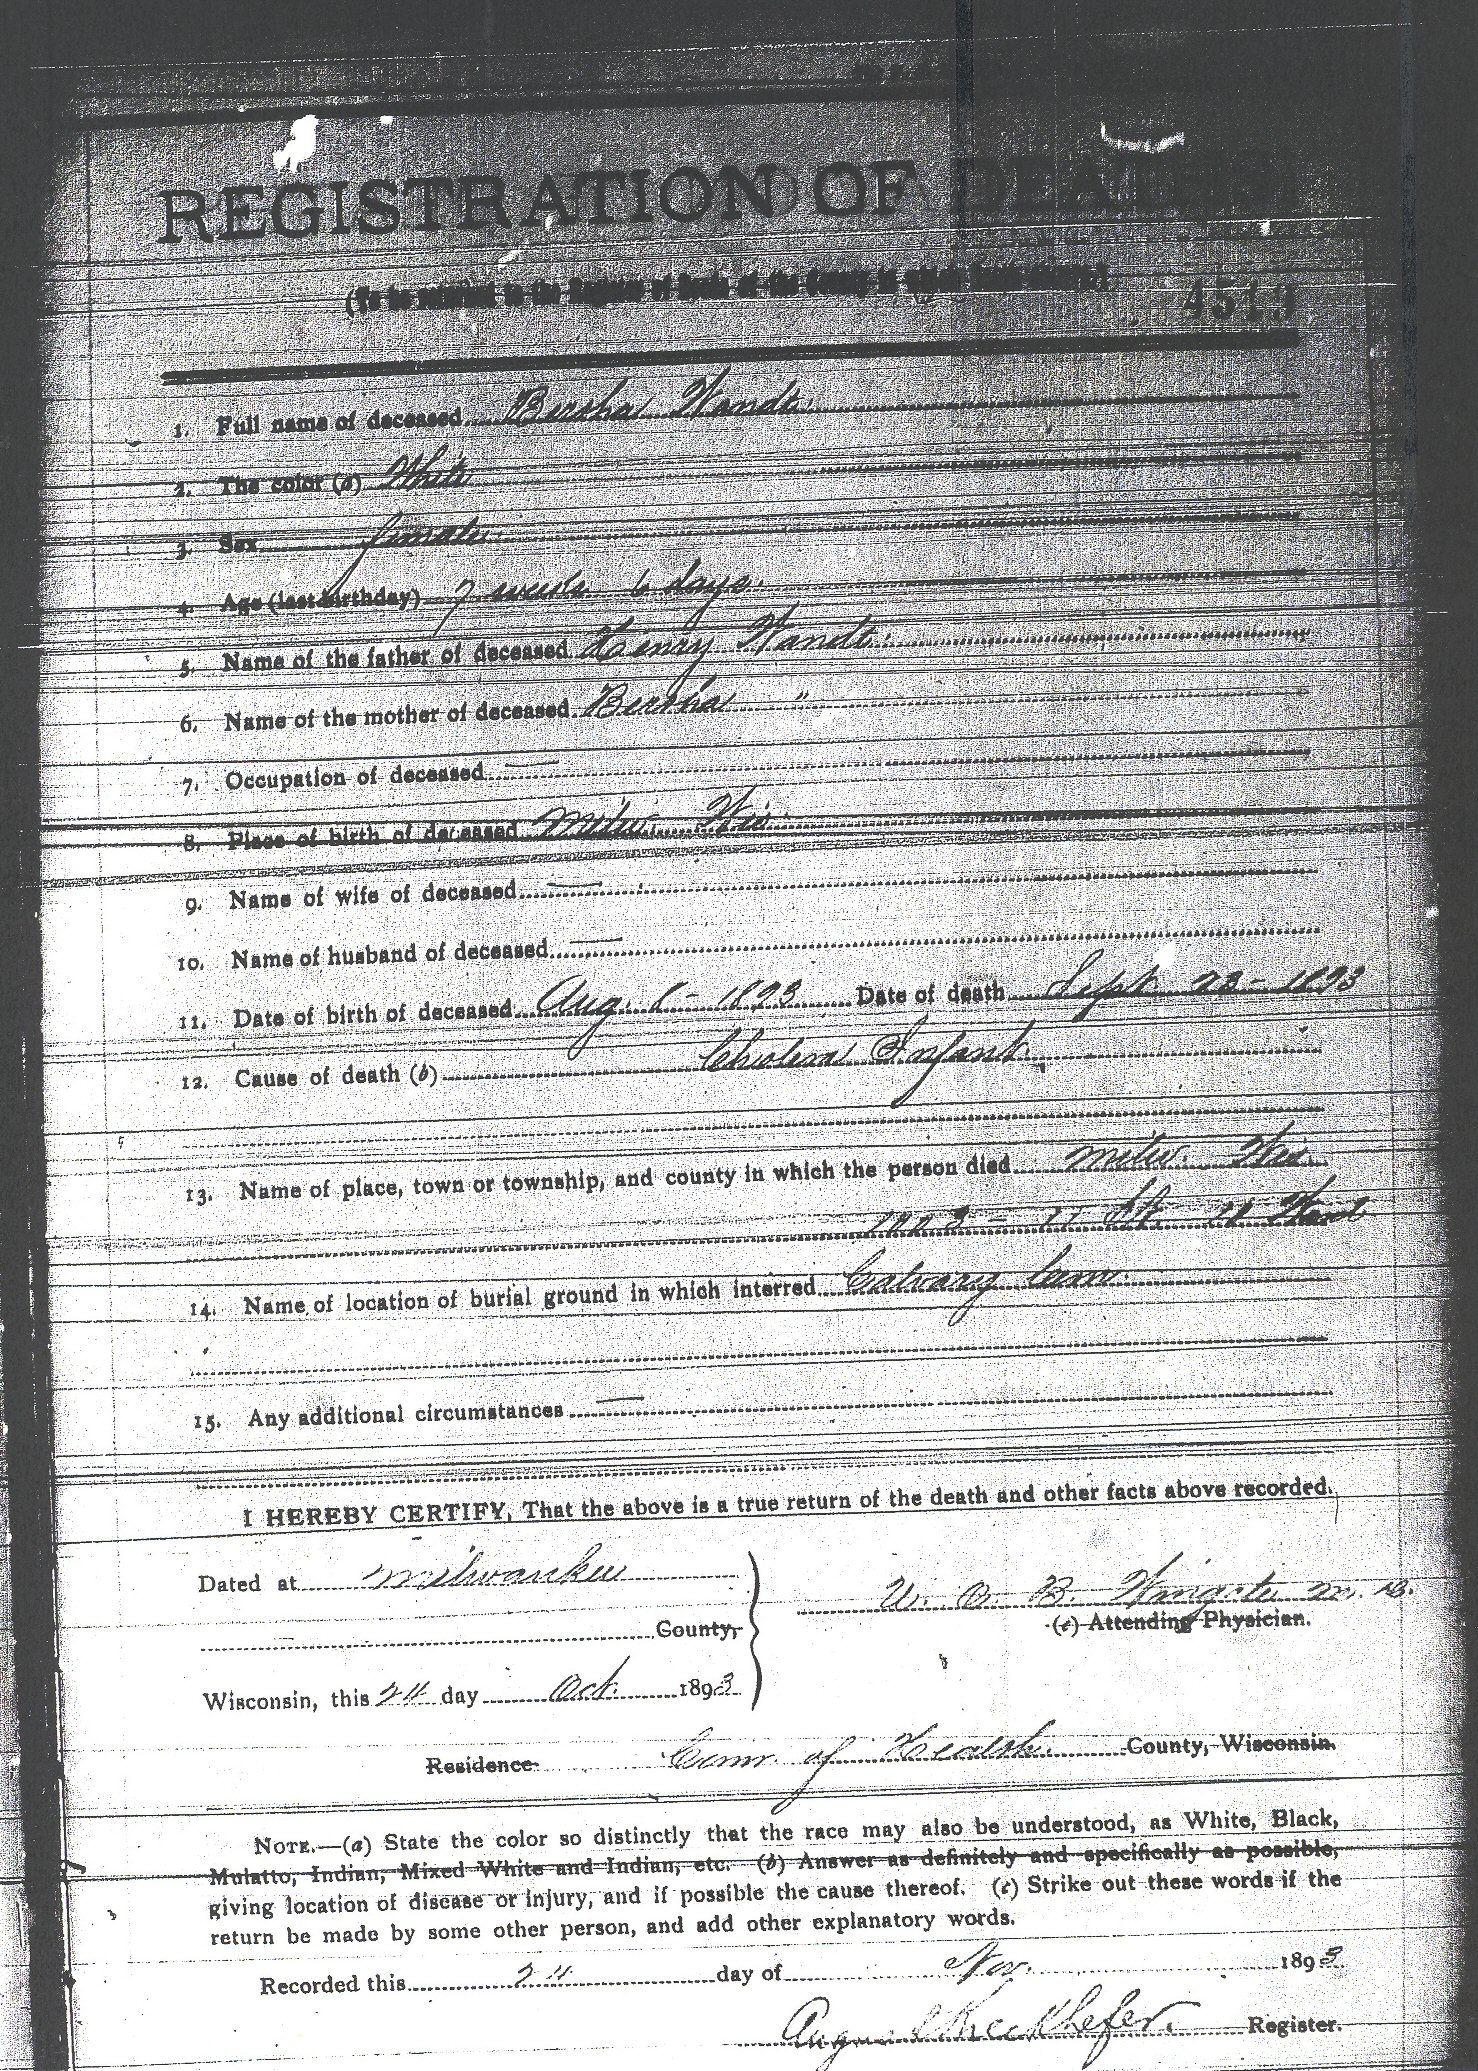 REGISTRATION OF DEATHS
(To be returned to the Register of Deeds of the County in which Death
4513
1. Full name of deceased Bertha Wandt
2. The color (a) White
3. Sex female
4. Age (last birthday) 7 weeks 6 days.
5. Name of the father of deceased Henry Wandt
6. Name of the mother of deceased Bertha "
7. Occupation of deceased —
8. Place of birth of deceased Milw. Wis.
9. Name of wife of deceased —
10. Name of husband of deceased —
11. Date of birth of deceased Aug. 8 - 1893 Date of death Sept. 23 - 1893
12. Cause of death (b) Cholera Infant.
13. Name of place, town or township, and county in which the person died Milw. Wis.
11 St. Ward
14. Name of location of burial ground in which interred Calvary Cem.
15. Any additional circumstances —
I HEREBY CERTIFY, That the above is a true return of the death and other facts above recorded.
Dated at Milwaukee
County,
U. O. B. Wingate M. D.
(c) Attending Physician.
Wisconsin, this 24 day Oct. 1893
Residence Com. of Health. County, Wisconsin.
NOTE.—(a) State the color so distinctly that the race may also be understood, as White, Black,
Mulatto, Indian, Mixed White and Indian, etc. (b) Answer as definitely and specifically as possible,
giving location of disease or injury, and if possible the cause thereof. (c) Strike out these words if the
return be made by some other person, and add other explanatory words.
Recorded this 24 day of Nov. 1893
August Rieckhefer. Register.